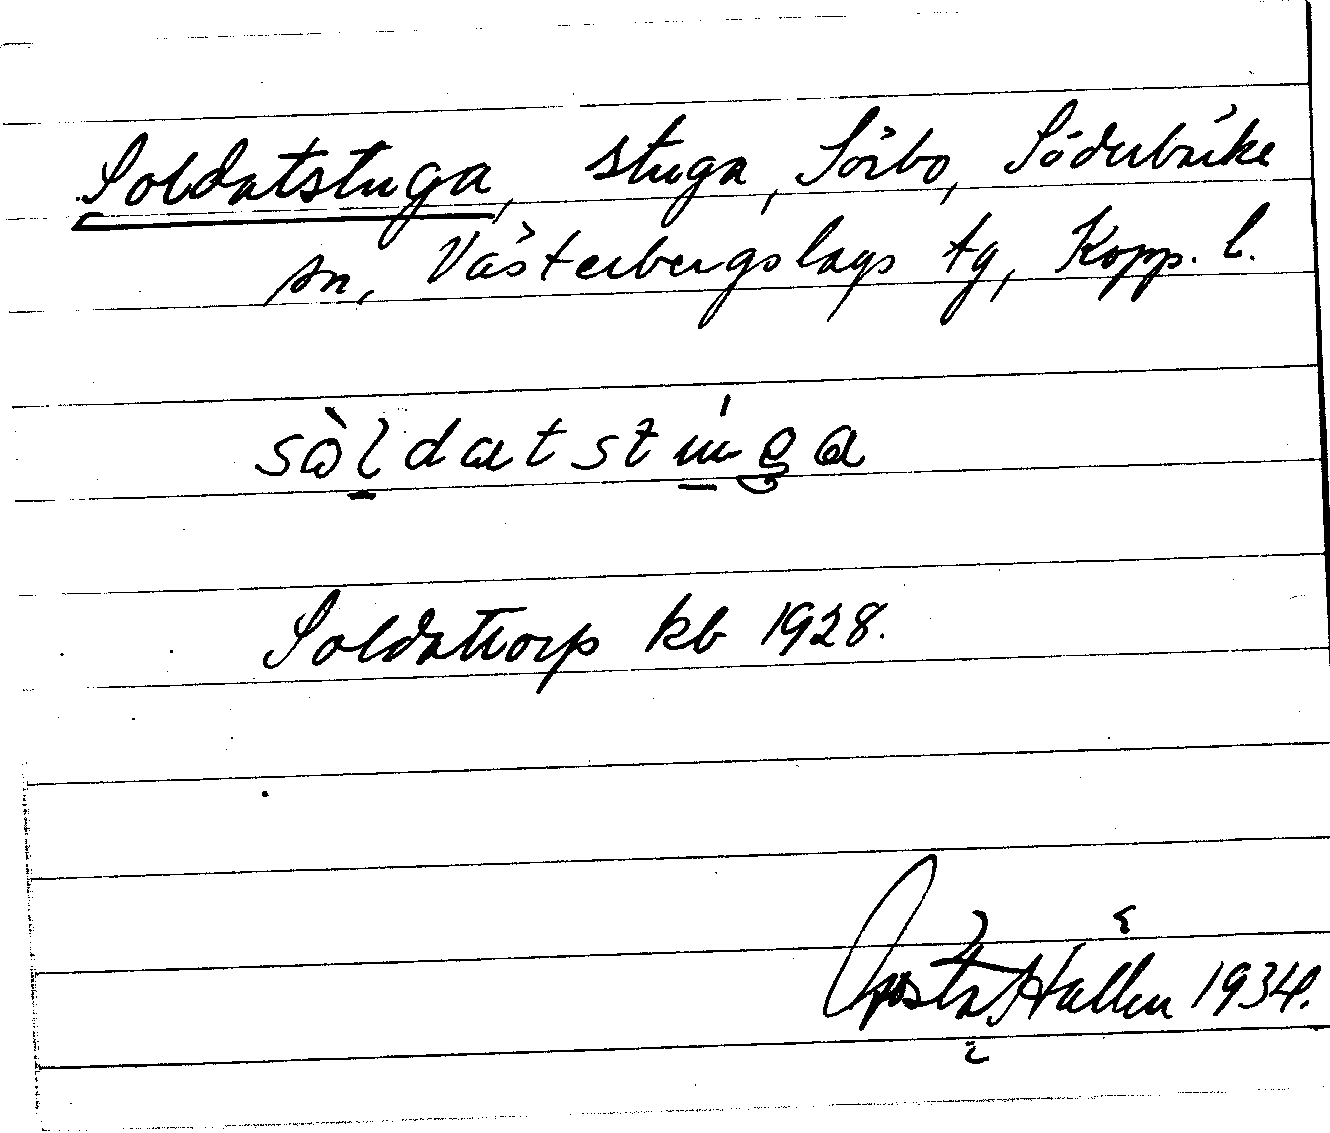 Soldatstuga, stuga, Sörbo, Söderbärke
sn, Västerbergslags tg, Kopp. l.
Soldattorp kb 1928.
Gösta Hallén 1934.